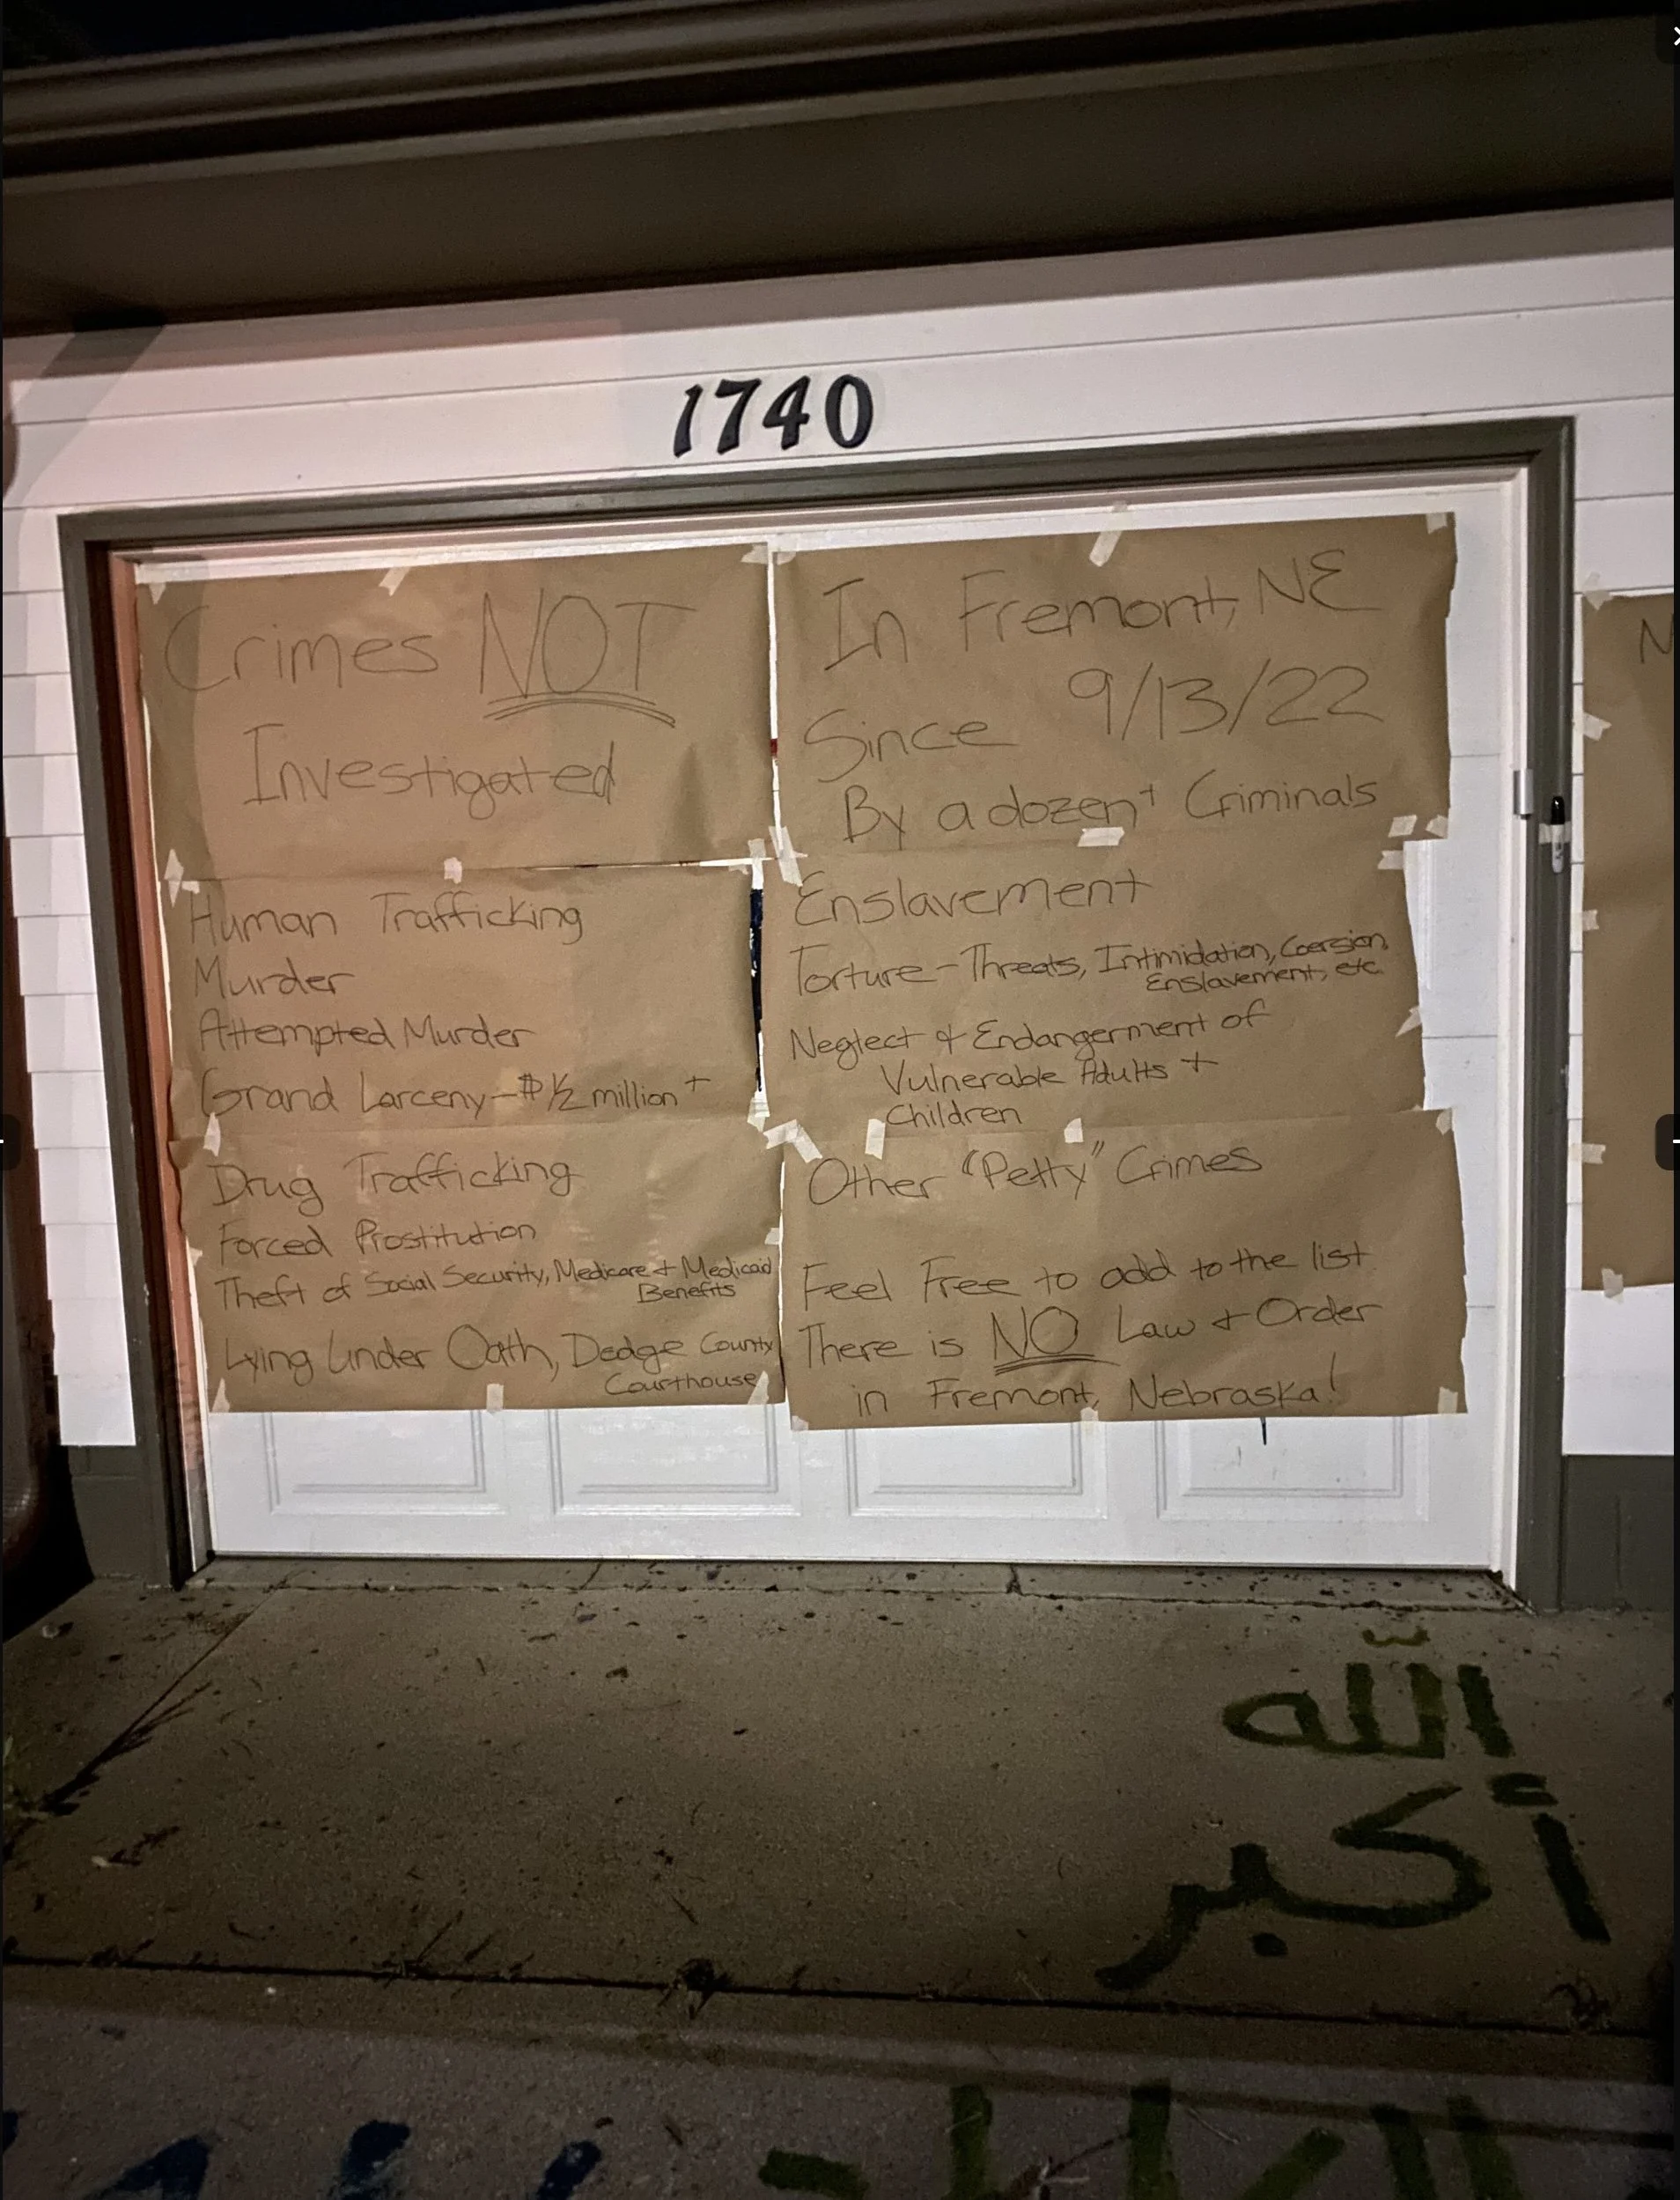 1740
Crimes NOT
Investigated
In Fremont, NE
Since 9/13/22
By a dozen+ Criminals
Human Trafficking
Murder
Attempted Murder
Grand Larceny-$1/2 million+
Enslavement
Torture-Threats, Intimidation, Coersion,
Enslavement, etc.
Neglect & Endangerment of
Vulnerable Adults +
Children
Drug Trafficking
Forced Prostitution
Theft of Social Security, Medicare + Medicaid
Benefits
Lying Under Oath, Dodge County
Courthouse
Other "Petty" Crimes
Feel Free to add to the list
There is NO Law & Order
in Fremont, Nebraska!
N
اللّه
أكبر